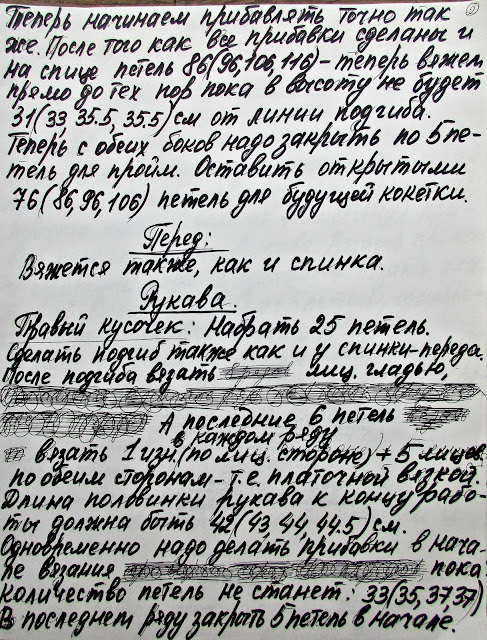 ②
Теперь начинаем прибавлять точно так
же. После того как все прибавки сделаны и
на спице петель 86(96,106,116) - теперь вяжем
прямо до тех пор пока в высоту не будет
31(33, 35.5, 35,5) см от линии подгиба.
Теперь с обеих боков надо закрыть по 5 пе-
тель для пройм. Оставить открытыми
76(86,96,106) петель для будущей кокетки.
Перед:
Вяжется также, как и спинка.
Рукава.
Правый кусочек: Набрать 25 петель.
Сделать подгиб также как и у спинки-переда.
После подгиба вязать лиц. гладью,
А последние 6 петель
в каждом ряду
вязать 1 изн.(по лиц. стороне) + 5 лицев
по обеим сторонам - т.е. платочной вязкой.
Длина половинки рукава к концу рабо-
ты должна быть 42(43,44,44.5) см.
Одновременно надо делать прибавки в нача-
ле вязания пока
количество петель не станет: 33(35,37,37)
В последнем ряду закрыть 5 петель в начале.